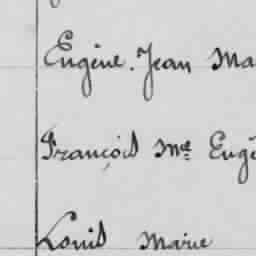 Eugène. Jean Ma
François Mie Eugè
Louis Marie